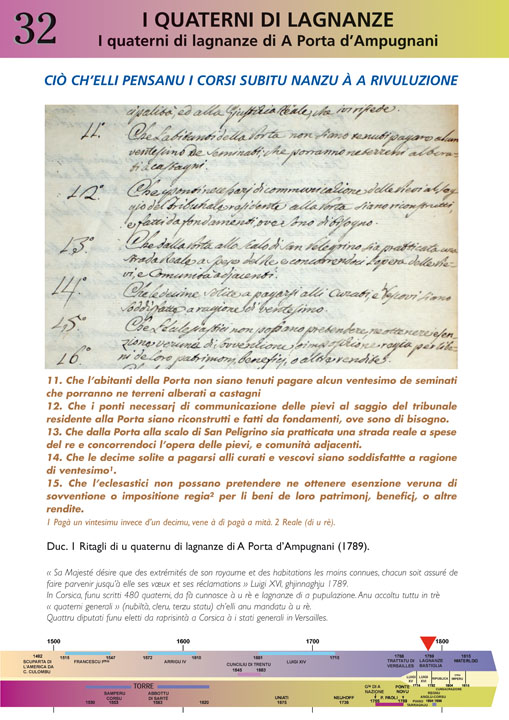 32
I QUATERNI DI LAGNANZE
I quaterni di lagnanze di A Porta d’Ampugnani
CIÒ CH’ELLI PENSANU I CORSI SUBITU NANZU À A RIVULUZIONE
ed alla Giustizia Reale
11.°
Che l'abitanti della Porta non siano tenuti pagare alcun
ventesimo de Seminati, che porranno ne terreni albera-
ti a castagni.
12.°
Che i ponti necessarj di communicazione delle Pievi al Sag-
gio del Tribunale residente alla Porta siano ricostrutti,
e fatti da fondamenti, ove sono di bisogno.
13.°
Che dalla Porta alla Scalo di San Pelegrino, sia pratticata una
strada Reale a spese del Re e concorrendoci l'opera delle Pie-
vi, e Comunità adjacenti.
14.°
Che le decime solite a pagarsi alli Curati, e Vescovi siano
soddisfatte a ragione di ventesimo.
15.°
Che l'eclesiastici non possano pretendere, ne ottenere esen-
zione veruna di sovvenzione, o imposizione regia per li be-
ni de loro patrimonj, beneficj, o altre rendite.
16.°
11. Che l’abitanti della Porta non siano tenuti pagare alcun ventesimo de seminati
che porranno ne terreni alberati a castagni
12. Che i ponti necessarj di communicazione delle pievi al saggio del tribunale
residente alla Porta siano riconstrutti e fatti da fondamenti, ove sono di bisogno.
13. Che dalla Porta alla scalo di San Peligrino sia pratticata una strada reale a spese
del re e concorrendoci l’opera delle pievi, e comunità adjacenti.
14. Che le decime solite a pagarsi alli curati e vescovi siano soddisfattte a ragione
di ventesimo¹.
15. Che l’eclesastici non possano pretendere ne ottenere esenzione veruna di
sovventione o impositione regia² per li beni de loro patrimonj, beneficj, o altre
rendite.
1 Pagà un vintesimu invece d’un decimu, vene à dì pagà a mità. 2 Reale (di u rè).
Duc. 1 Ritagli di u quaternu di lagnanze di A Porta d’Ampugnani (1789).
« Sa Majesté désire que des extrémités de son royaume et des habitations les moins connues, chacun soit assuré de
faire parvenir jusqu’à elle ses vœux et ses réclamations » Luigi XVI, ghjinnaghju 1789.
In Corsica, funu scritti 480 quaterni, da fà cunnosce à u rè e lagnanze di a pupulazione. Anu accoltu tuttu in trè
« quaterni generali » (nubiltà, cleru, terzu statu) ch’elli anu mandatu à u rè.
Quattru diputati funu eletti da raprisintà a Corsica à i stati generali in Versailles.
1500
1600
1700
1800
1492
SCUPARTA DI
L’AMERICA DA
C. CULOMBU
1515
FRANCESCU Iᵐᵘ
1547
1572
ARRIGU IV
1610
1661
CUNCILIU DI TRENTU
1545 1563
LUIGI XIV
1715
1768
TRATTATU DI
VERSAGLIE
1789
LAGNANZE
BASTIGLIA
1815
WATERLOO
LUIGI
XV
LUIGI
XVI
REPUBLICA
IMPERU
TORRE
SAMPERU
CORSU
1553
ABBOTTU
DI SARTÈ
1583
1620
UNIATI
1676
NEUHOFF
1736
NAZIONE
P. PAOLI
PONTE
NOVU
1755
1769